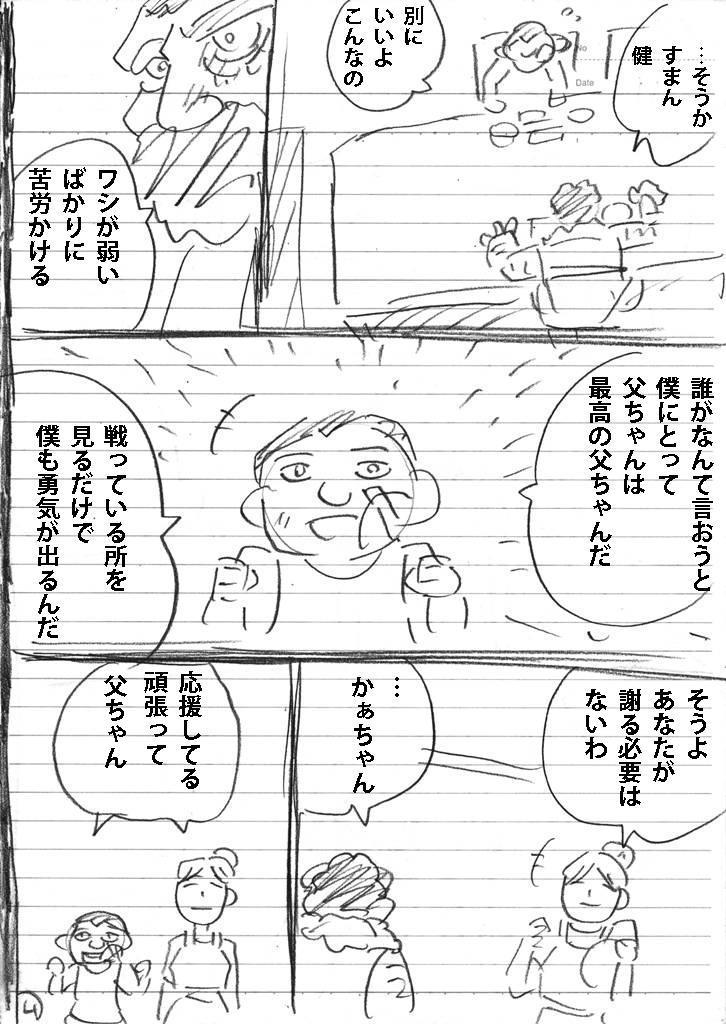 …そうか
すまん
健
別に
いいよ
こんなの
No
Date
ワシが弱い
ばかりに
苦労かける
誰がなんて言おうと
僕にとって
父ちゃんは
最高の父ちゃんだ
戦っている所を
見るだけで
僕も勇気が出るんだ
そうよ
あなたが
謝る必要は
ないわ
…
かぁちゃん
応援してる
頑張って
父ちゃん
4